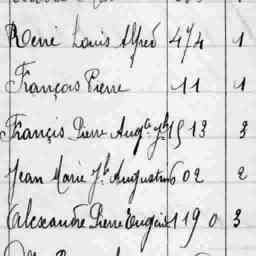 René Louis Alfred 474 1
François Pierre 11 1
Françis Pierre Aug.te J.h 1513 3
Jean Marie J.h Augustin 602 2
Alexandre Pierre Eugène 1190 3